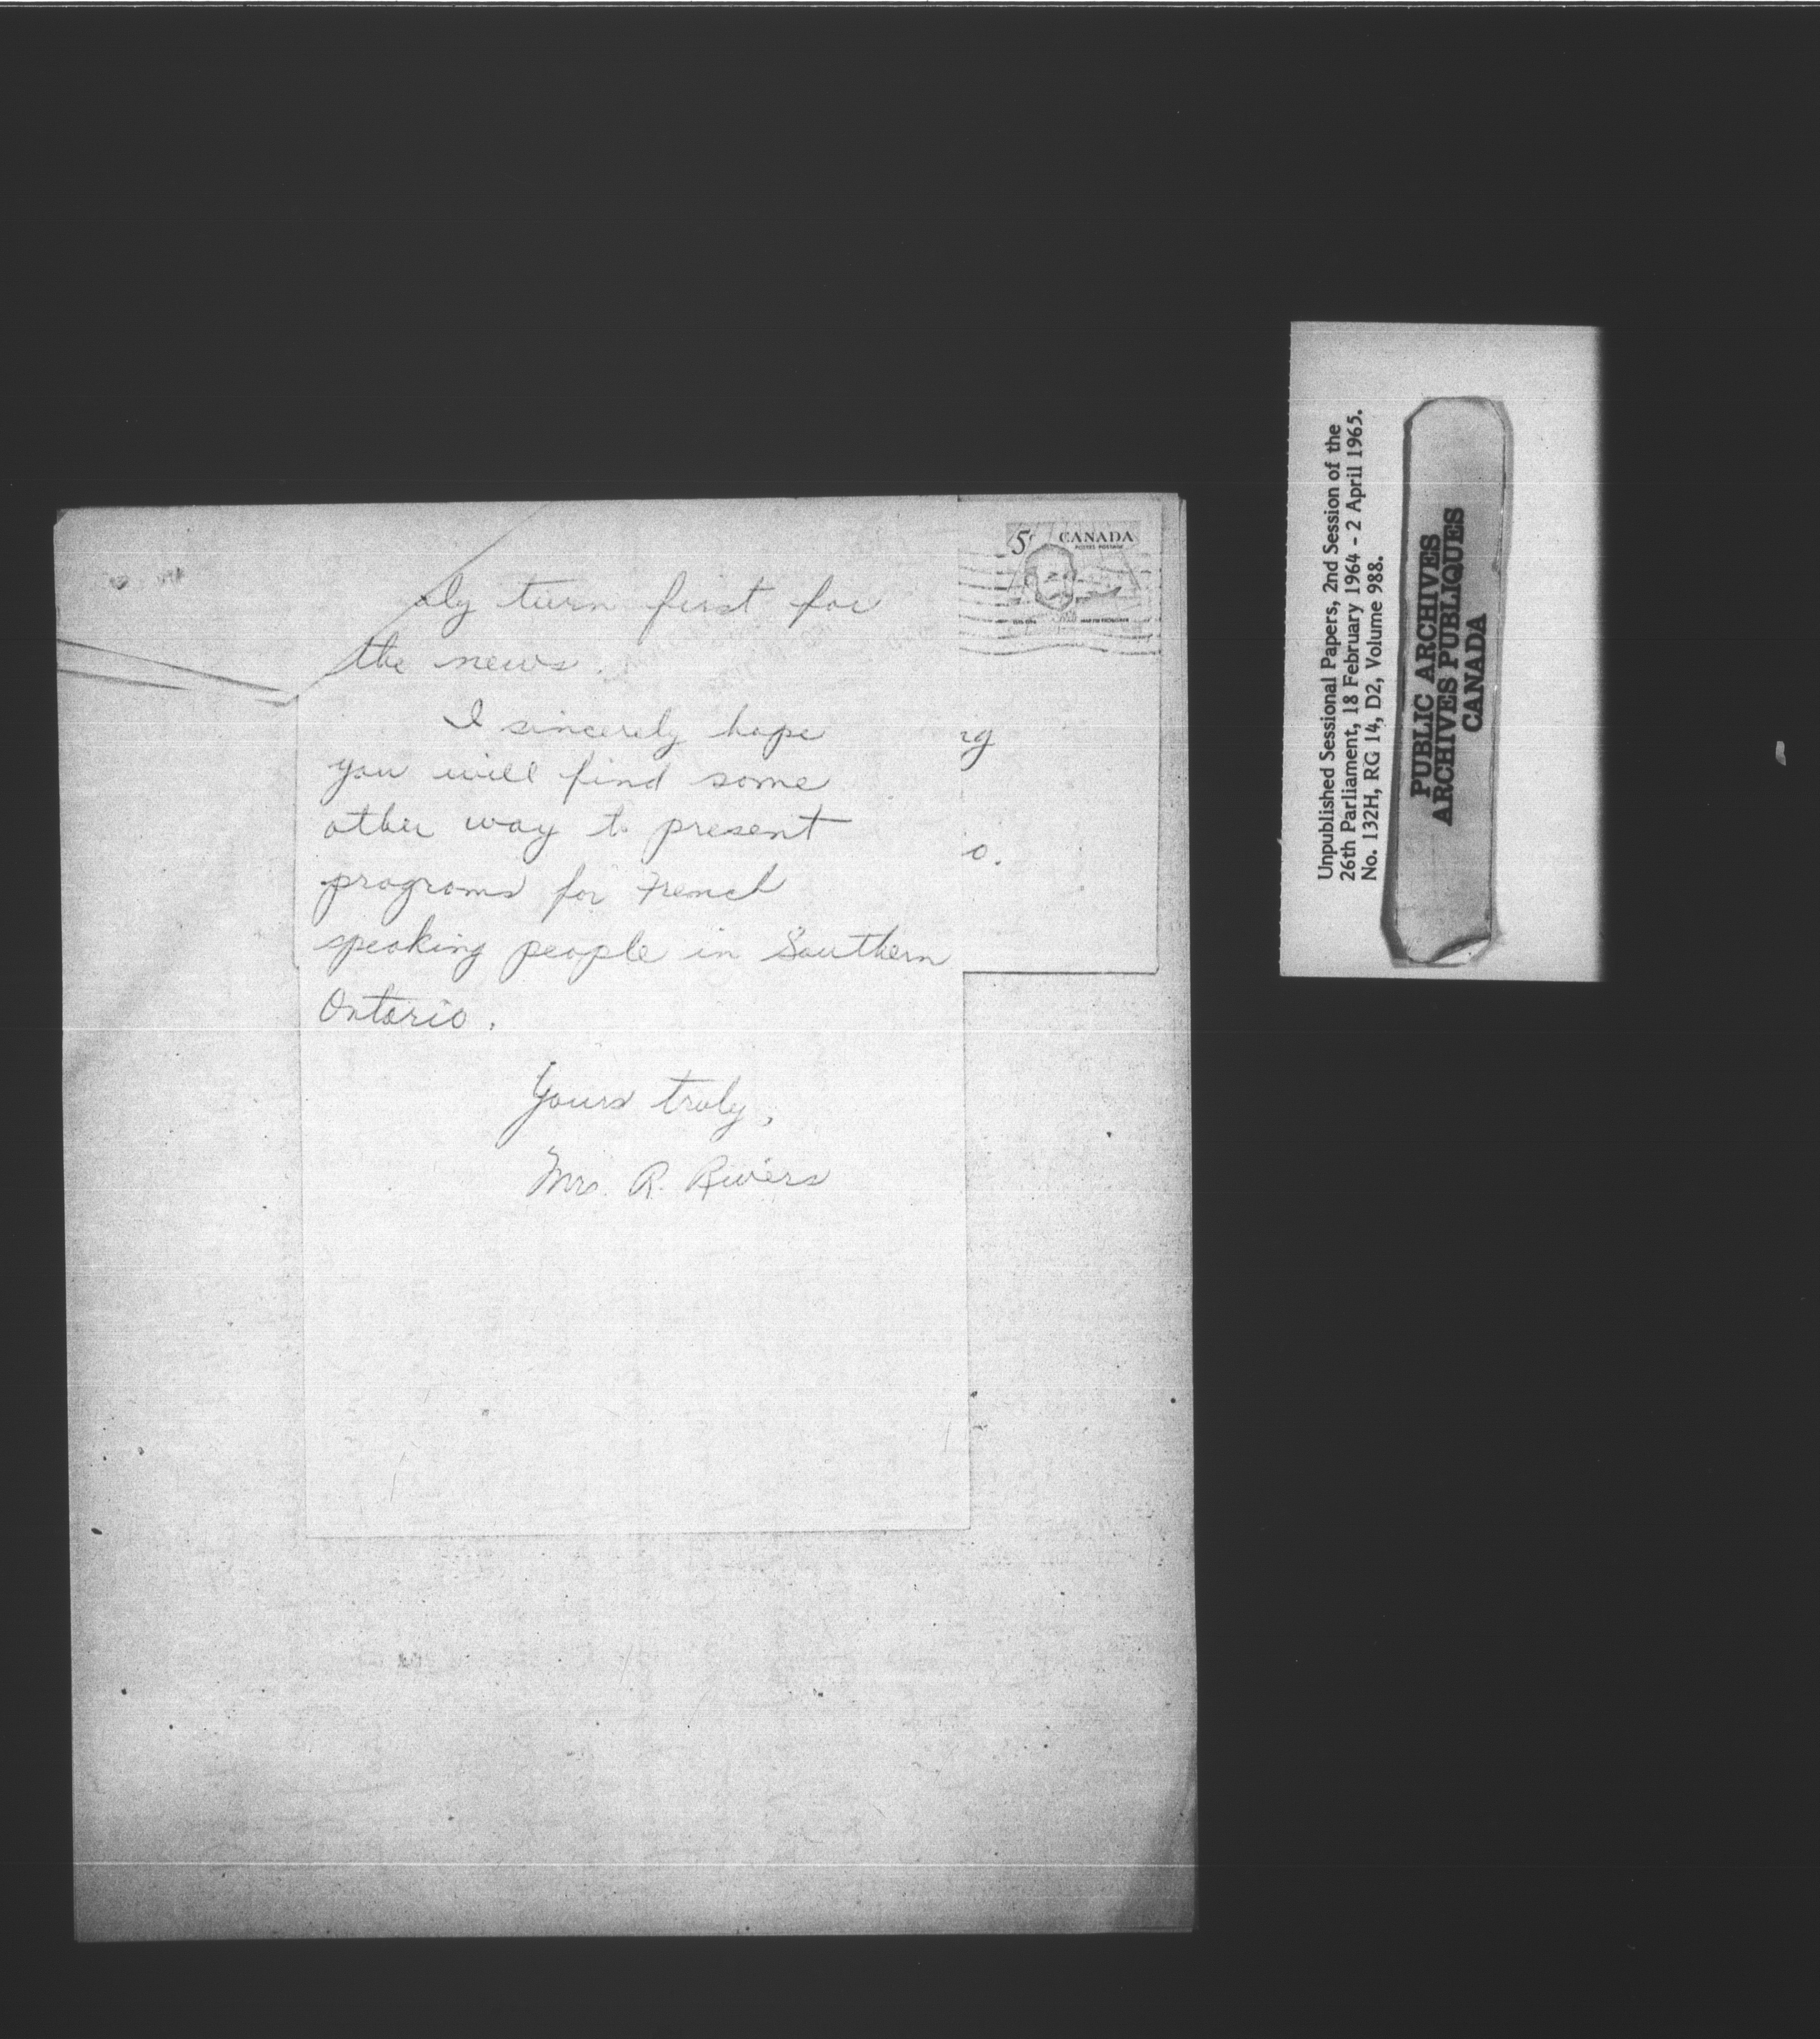 ly turn first for
the news.
I sincerely hope
you will find some
other way to present
programs for French
speaking people in Southern
Ontario.
Yours truly,
Mrs. R. Rivers
5¢ CANADA
POSTES POSTAGE
o.
Unpublished Sessional Papers, 2nd Session of the
26th Parliament, 18 February 1964 - 2 April 1965.
No. 132H, RG 14, D2, Volume 988.
PUBLIC ARCHIVES
ARCHIVES PUBLIQUES
CANADA